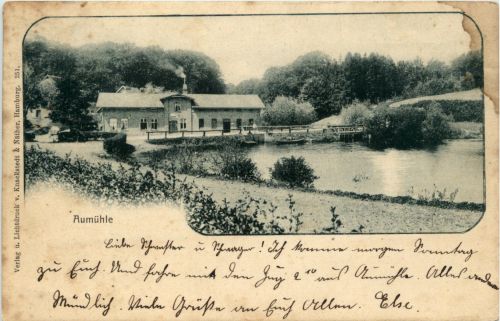 Verlag u. Lichtdruck v. Knackstedt & Näther, Hamburg. 251.
Aumühle
Liebe Schwester u Schwager! Ich komme morgen Sonntag
zu Euch. Und fahre mit den Zug 2 10 aus Aumühle. Alles andere
Mündlich. Viele Grüße an Euch Allen. Else.